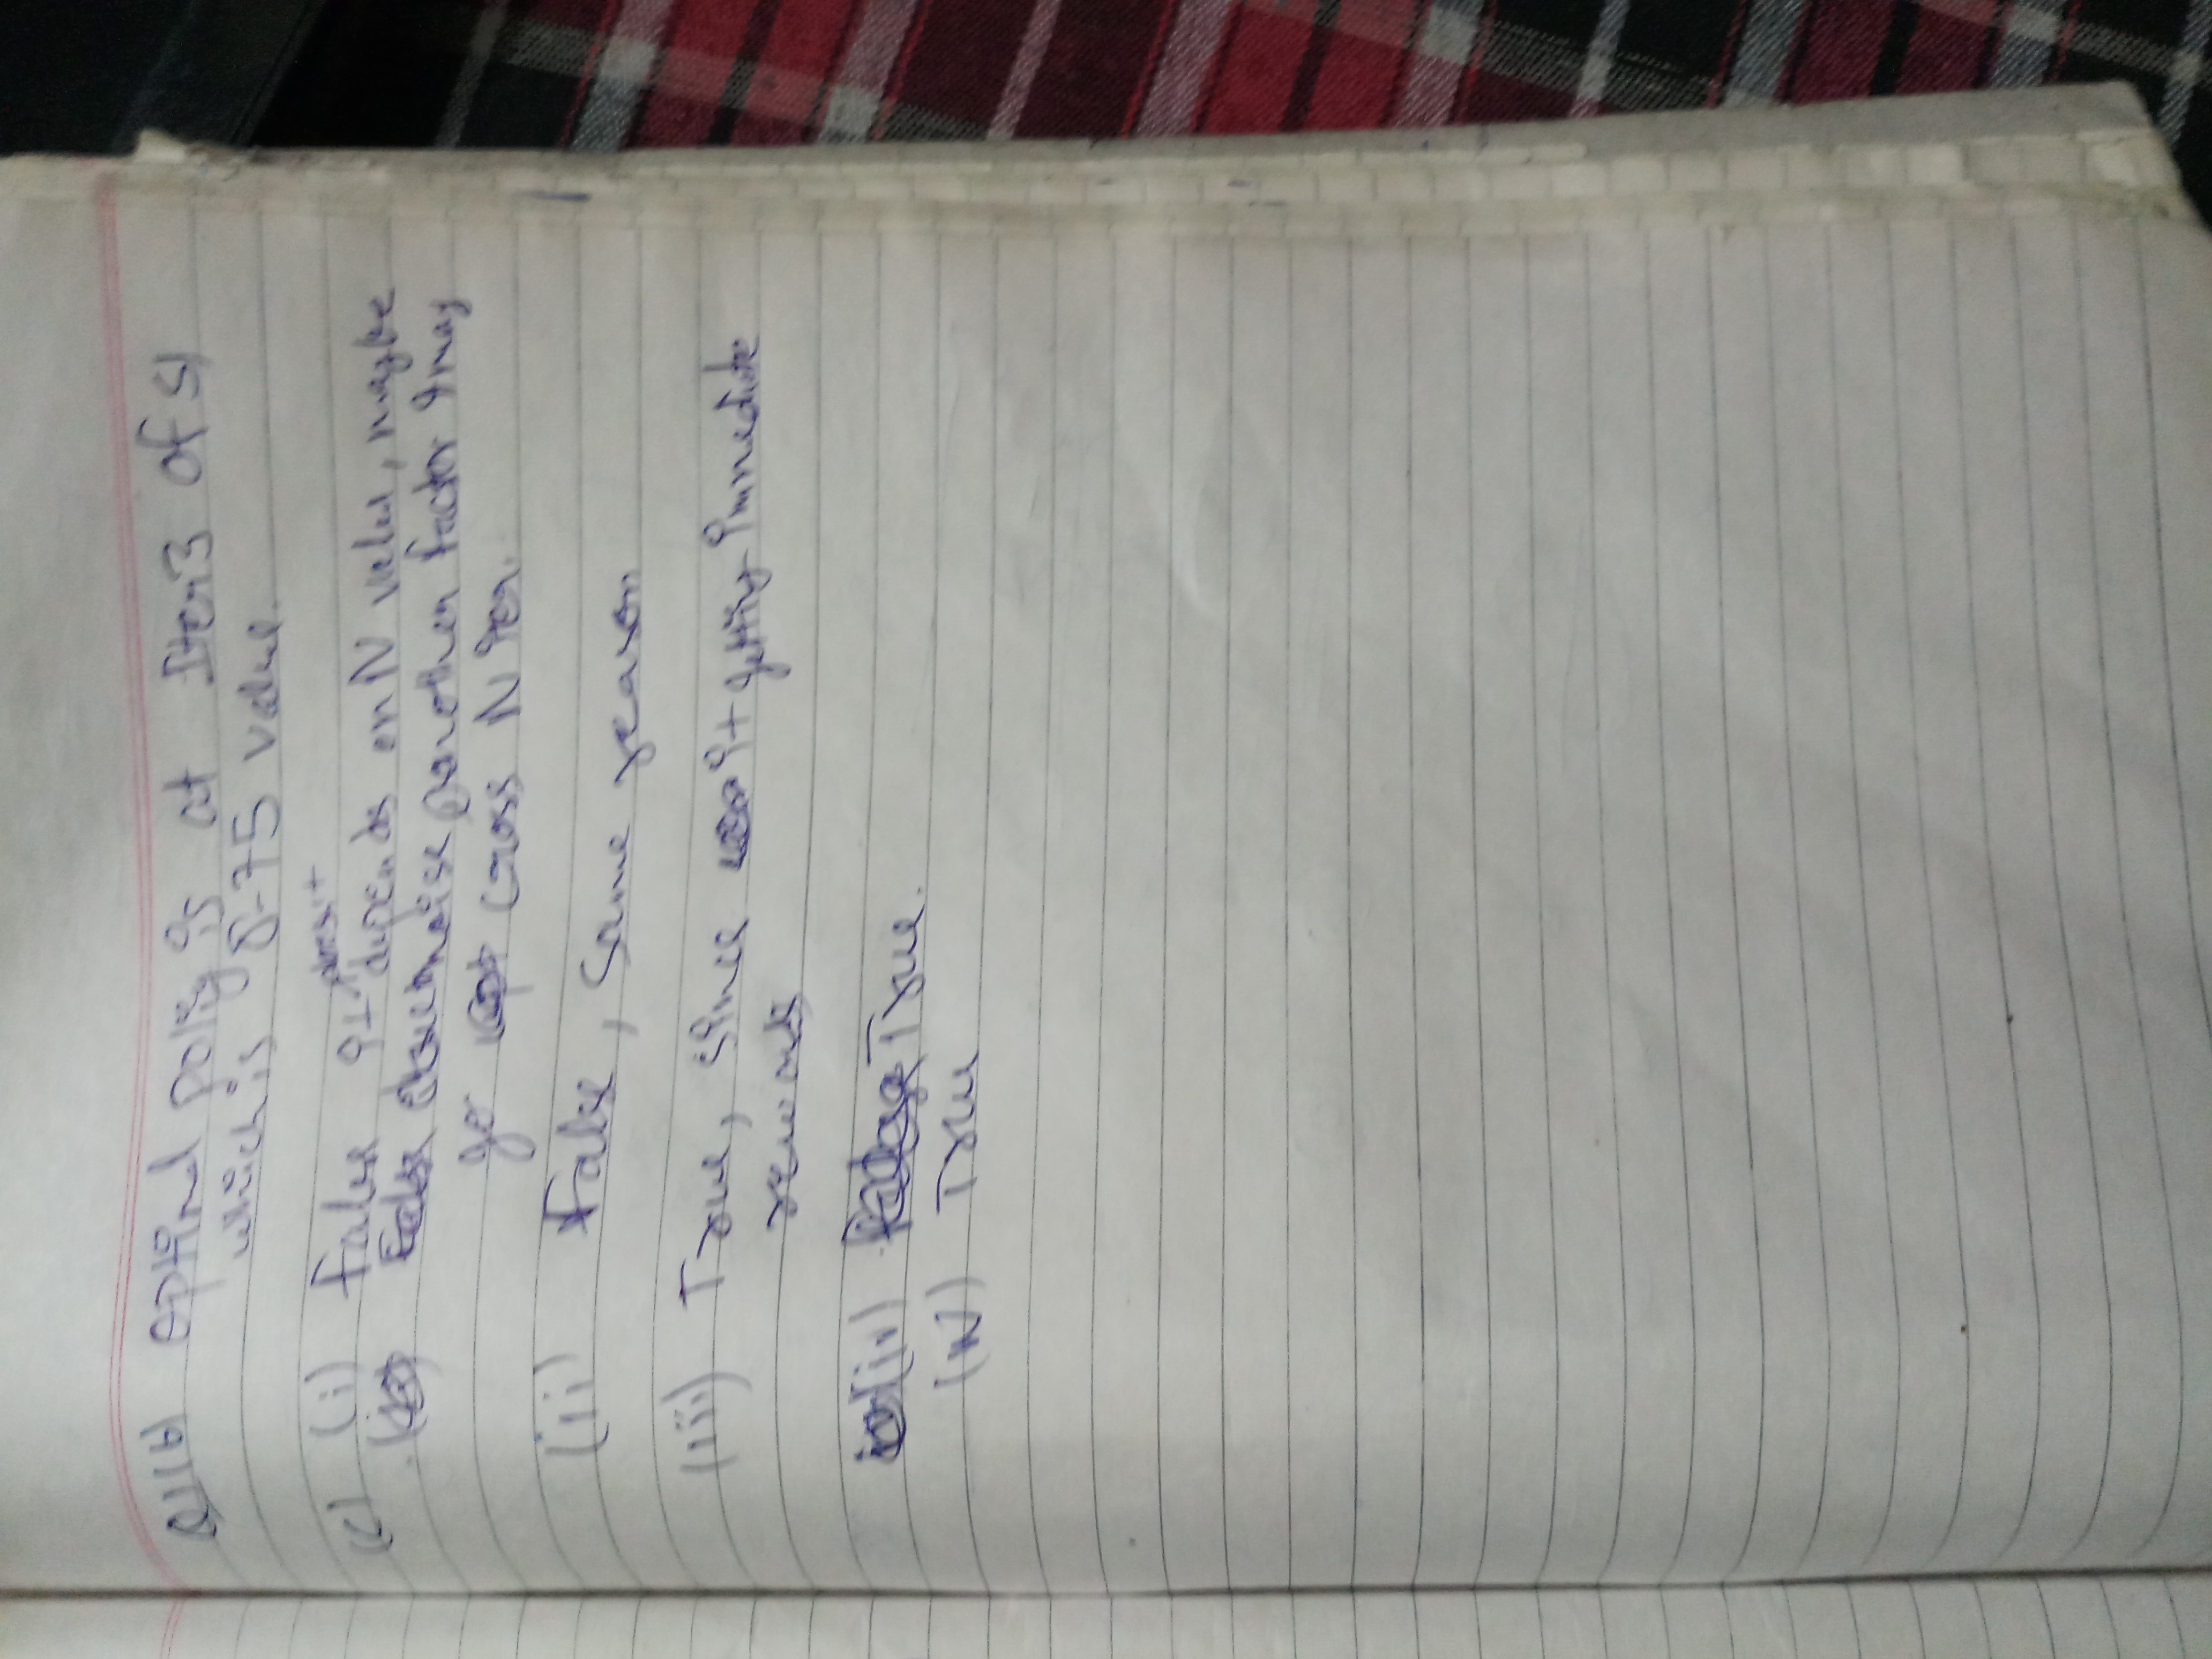 Q1(b) optimal policy is at Iter3 of S1
which is 8.75 value.
(c) (i) False It doesn't depends on N value, maybe
due to noise or another factor it may
go cross N iter.
(ii) False, same reason
(iii) True, since it getting immediate
rewards
(iv) True.
(v) True